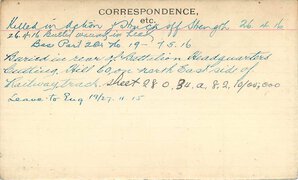 CORRESPONDENCE,
etc.
Killed in Action Struck off Strength 26.4.16
26.4.16 Bullet wound in
Bas Part 2 No 19 - 7.5.16
Buried in rear of Battalion Headquarters
Hill 60, on north East side of
Railway track. Sheet 28 O, 34, a. 8.2. 10/00,000
Leave to Eng 19/27.11.15